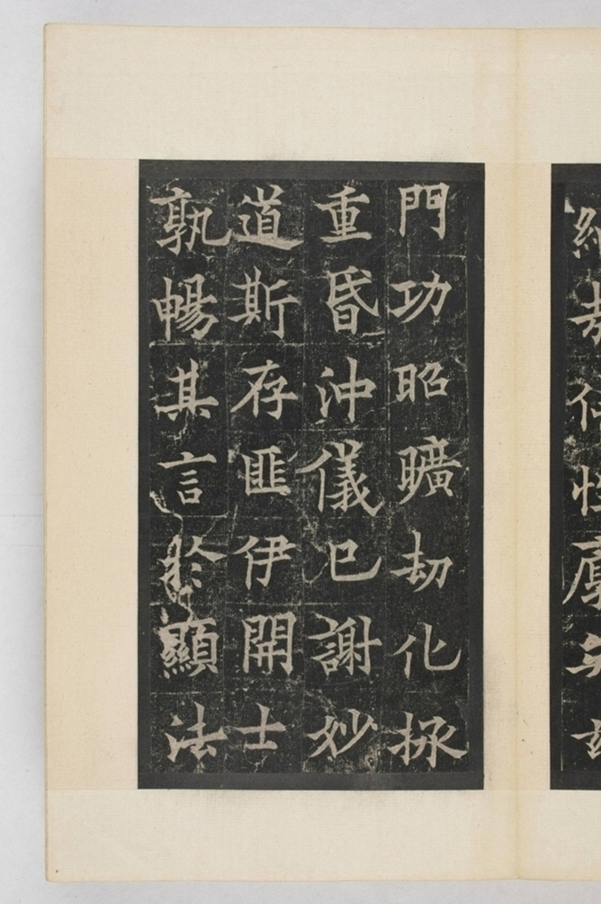 門功昭曠劫化拯
重昏沖儀已謝妙
道斯存匪伊開士
孰暢其言於顯法